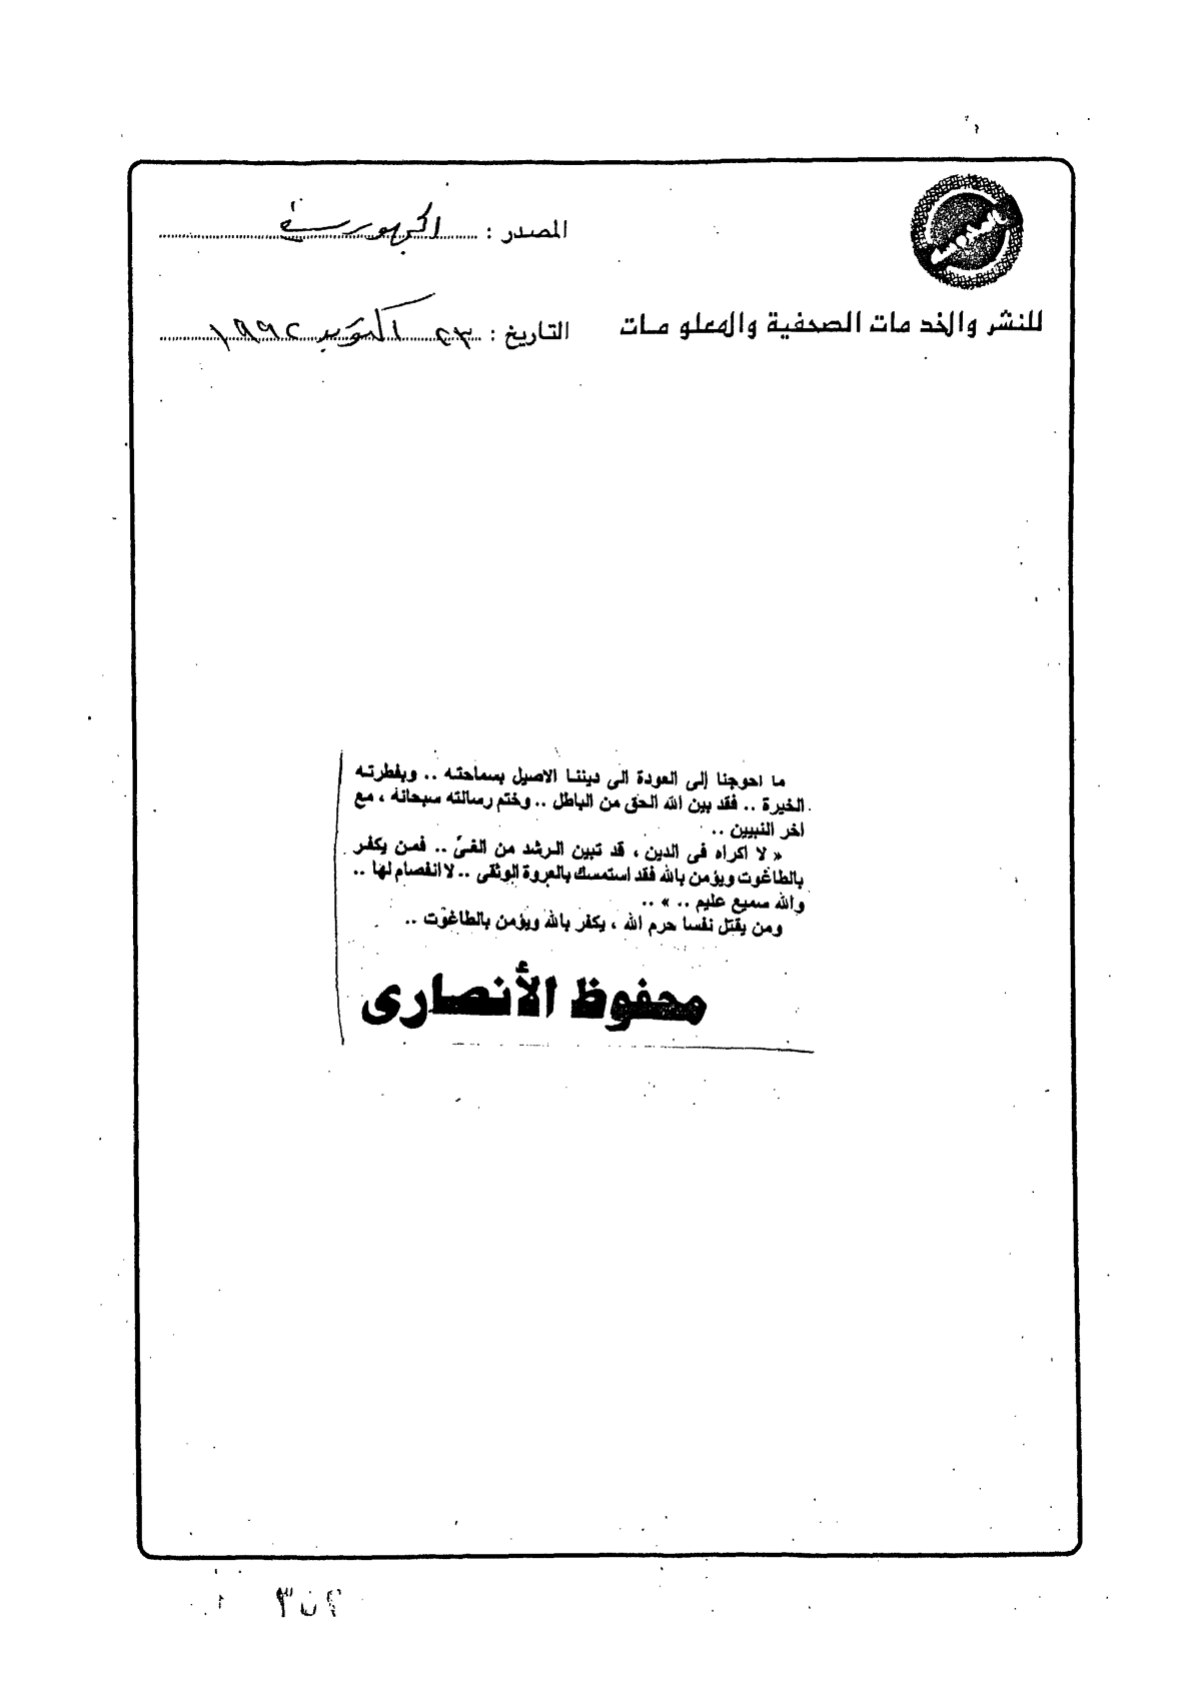 المصدر : الجمهورية
للنشر والخدمات الصحفية والمعلومات
التاريخ : ٢٣ اكتوبر ١٩٩٢
ما احوجنا إلى العودة الى ديننا الاصيل بسماحته .. وبفطرته
الخيرة .. فقد بين الله الحق من الباطل .. وختم رسالته سبحانه ، مع
اخر النبيين ..
« لا اكراه فى الدين ، قد تبين الرشد من الغىّ .. فمن يكفر
بالطاغوت ويؤمن بالله فقد استمسك بالعروة الوثقى .. لا انفصام لها ..
والله سميع عليم .. » ..
ومن يقتل نفسا حرم الله ، يكفر بالله ويؤمن بالطاغوت ..
محفوظ الأنصارى